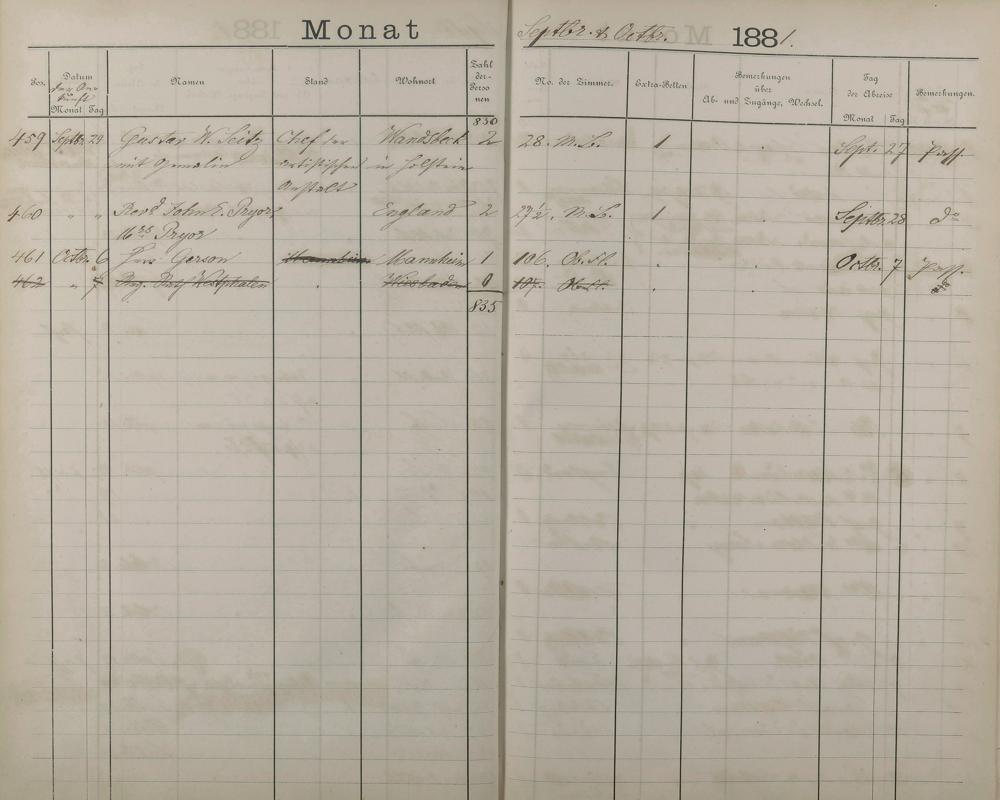 Monat Septbr. & Octbr. 1881.
Pos. Datum der An-kunft Monat Tag Namen Stand Wohnort Zahl der Perso nen No. der Zimmer. Extra-Betten Bemerkungen über Ab- und Zugänge, Wechsel. Tag der Abreise Monat Tag Bemerkungen.
830
459 Septbr. 24 Gustav W. Seitz Chef der Wandsbeck 2 28. M.L. 1 . Sept. 27 Pass.
mit Gemalin artistischen in Holstein
Anstalt
460 " " Revd John E. Pryor England 2 27 1/2. M.L. 1 . Septbr. 28 do
Pryor
461 Octbr. 6 Gerson Mannheim 1 106. . . Octbr. 7 Pass.
462 " 7 Westphalen . Wiesbaden 0 107. . .
835